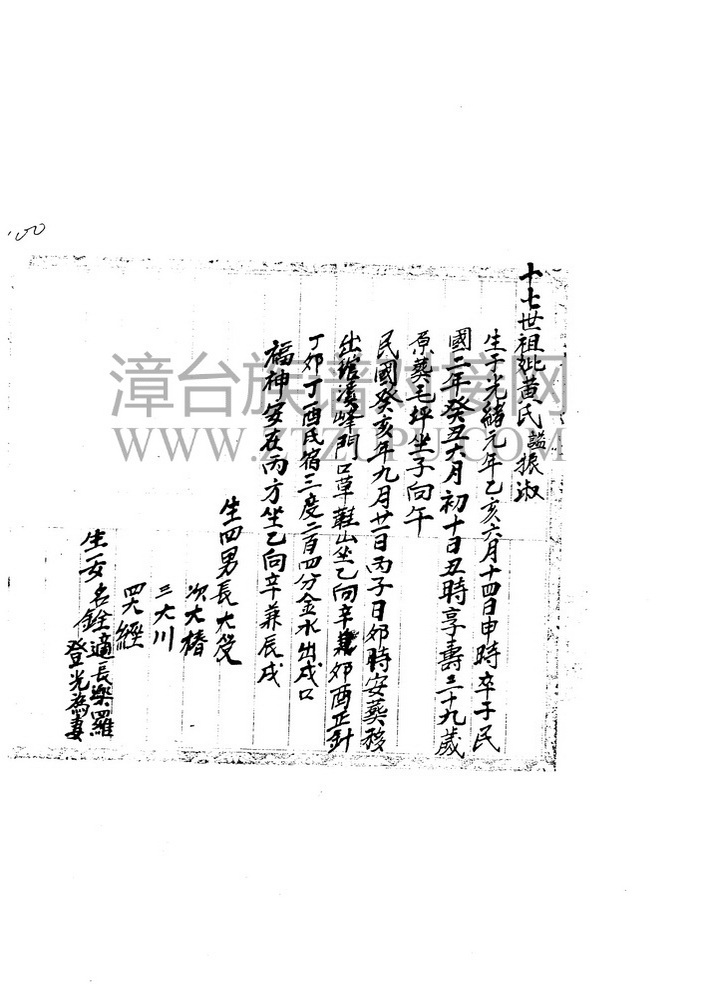 100
十七世祖妣黄氏謚振淑
生于光緒元年乙亥六月十四日申時卒于民
國二年癸丑六月初十日丑時享壽三十九歲
原葬毛坪坐子向午
民國癸亥年九月廿一日丙子日卯時安葬移
出 溪峰門口草鞋山坐乙向辛兼卯酉正針
丁卯丁酉氐宿三度二百四分金水出戌口
福神安在丙方坐乙向辛兼辰戌
生四男長大役
次大椿
三大川
四大經
生一女名銓適長樂羅
登光為妻
漳台族谱对接网
WWW.ZTZUPU.COM